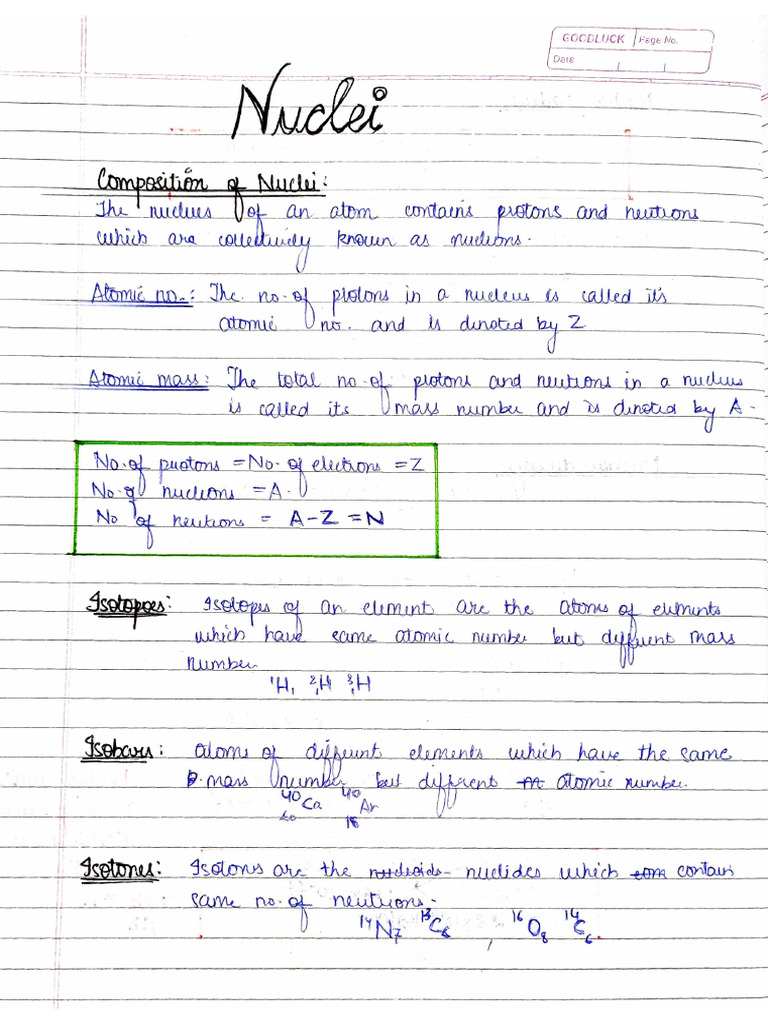 GOODLUCK Page No.
Date
Nuclei
Composition of Nuclei:
The nucleus of an atom contains protons and neutrons
which are collectively known as nucleons.
Atomic no.: The no. of protons in a nucleus is called it's
atomic no. and is denoted by Z
Atomic mass: The total no. of protons and neutrons in a nucleus
is called its mass number and is denoted by A.
No. of protons = No. of electrons = Z
No. of nucleons = A.
No of neutrons = A-Z = N
Isotopes: Isotopes of an element are the atoms of elements
which have same atomic number but different mass
number.
¹H, ²₁H ³₁H
Isobars: atoms of different elements which have the same
mass number but different atomic number.
⁴⁰₂₀Ca ⁴⁰₁₈Ar
Isotones: Isotones are the nuclides which contain
same no. of neutrons.
¹⁴N₇ ¹³C₆ , ¹⁶O₈ ¹⁴C₆.